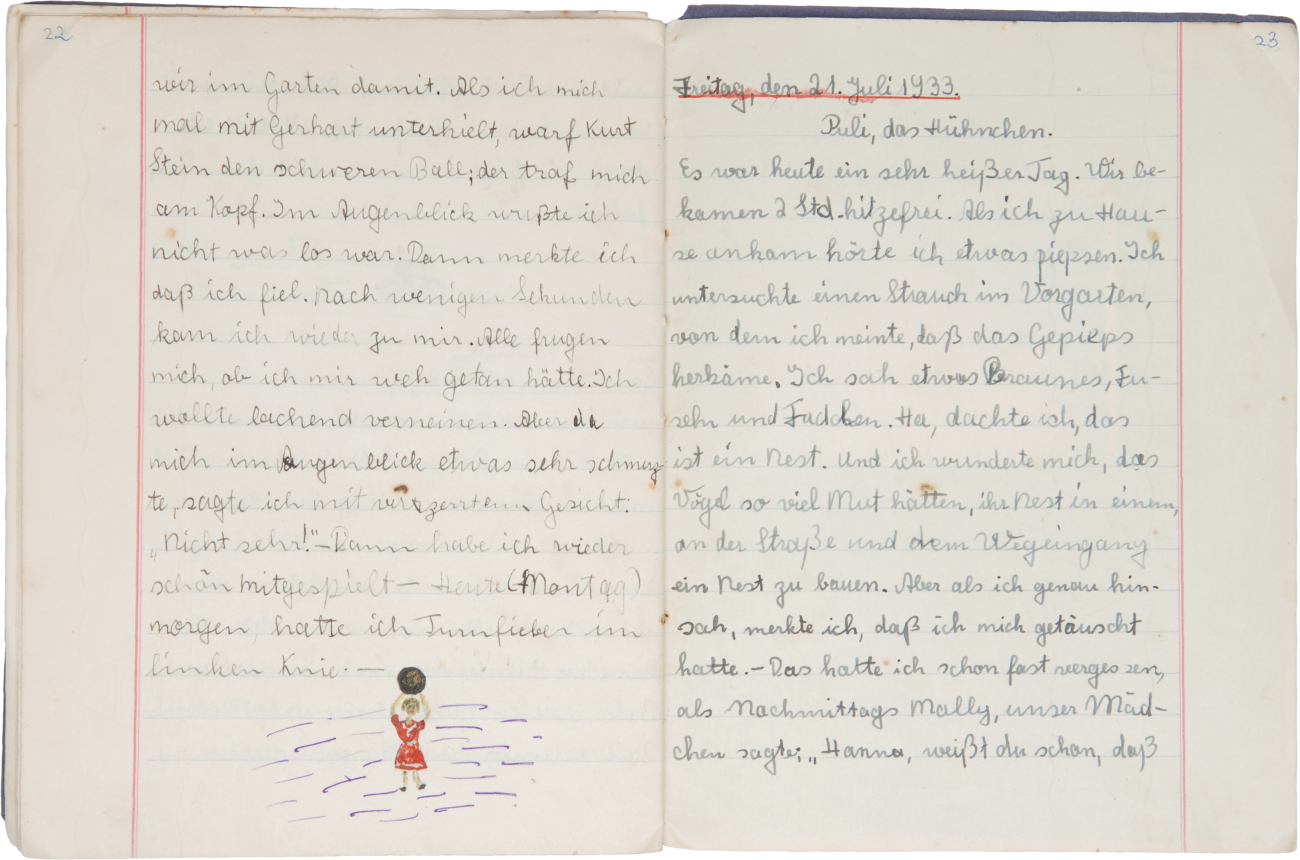 22
wir im Garten damit. Als ich mich
mal mit Gerhart unterhielt, warf Kurt
Stein den schweren Ball; der traf mich
am Kopf. Im Augenblick wußte ich
nicht was los war. Dann merkte ich
daß ich fiel. Nach wenigen Sekunden
kam ich wieder zu mir. Alle frugen
mich, ob ich mir weh getan hätte. Ich
wollte lachend verneinen. Aber da
mich im Augenblick etwas sehr schmerz-
te, sagte ich mit verzerrtem Gesicht:
„Nicht sehr!" – Dann habe ich wieder
schön mitgespielt – Heute (Montag)
morgen, hatte ich Turnfieber im
linken Knie. —
23
Freitag, den 21. Juli 1933.
Puli, das Hühnchen.
Es war heute ein sehr heißer Tag. Wir be-
kamen 2 Std. hitzefrei. Als ich zu Hau-
se ankam hörte ich etwas piepsen. Ich
untersuchte einen Strauch im Vorgarten,
von dem ich meinte, daß das Gepieps
herkäme. Ich sah etwas Braunes, Fu-
seln und Fädchen. Ha, dachte ich, das
ist ein Nest. Und ich wunderte mich, das
Vögel so viel Mut hätten, ihr Nest in einem,
an der Straße und dem Wegeingang
ein Nest zu bauen. Aber als ich genau hin-
sah, merkte ich, daß ich mich getäuscht
hatte. – Das hatte ich schon fast vergessen,
als Nachmittags Mally, unser Mäd-
chen sagte: „Hanna, weißt du schon, daß